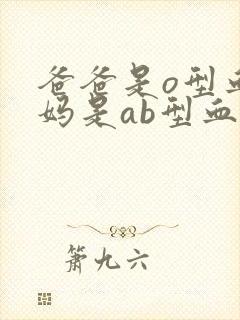 爸爸是o型血
妈是ab型血
萧九六